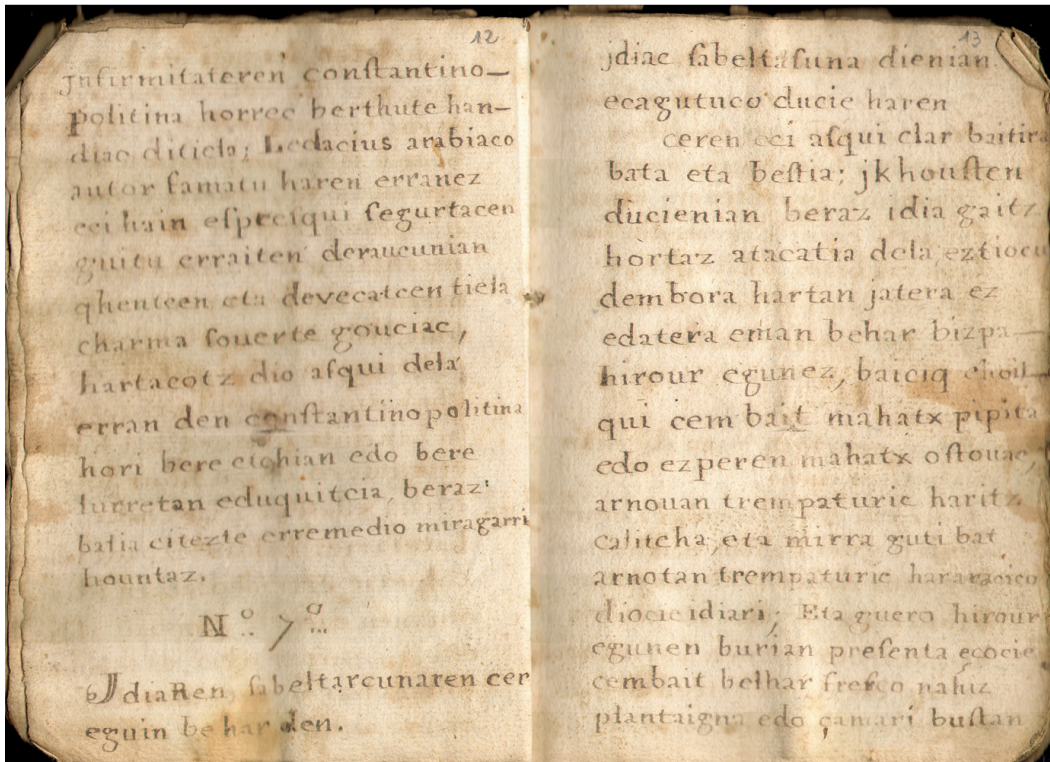 12
jnfirmitateren conſtantino—
politina horrec berthute han—
diac ditiela; Ledacius arabiaco
autor famatu haren erranez
eci hain eſpreſqui ſegurtacen
guitu erraiten deraucunian
qhentcen eta devecatcen tiela
charma ſouerte gouciac,
hartacotz dio aſqui dela
erran den conſtantinopolitina
hori bere etchian edo bere
ſurretan eduquitcia, beraz
balia citezte erremedio miragarri
hountaz.
N.º 7.º
Jdiaren ſabeltarcunaren cer
eguin behar den.
13
jdiac ſabeltaſuna dienian
ecagutuco ducie haren
ceren eci aſqui clar baitira
bata eta beſtia; jkhouſten
ducienian beraz idia gaitz
hortaz atacatia dela eztiocu
dembora hartan jatera ez
edatera eman behar bizpa—
hirour egunez, baiciq choil—
qui cembait mahatx pipita
edo ezperen mahatx oſtouac,
arnouan trempaturic haritz
calitcha, eta mirra guti bat
arnotan trempaturic hararacico
diocie idiari; Eta guero hirour
egunen burian preſenta ecocie
cembait belhar freſco naluz
plantaigna edo çamari buſtan